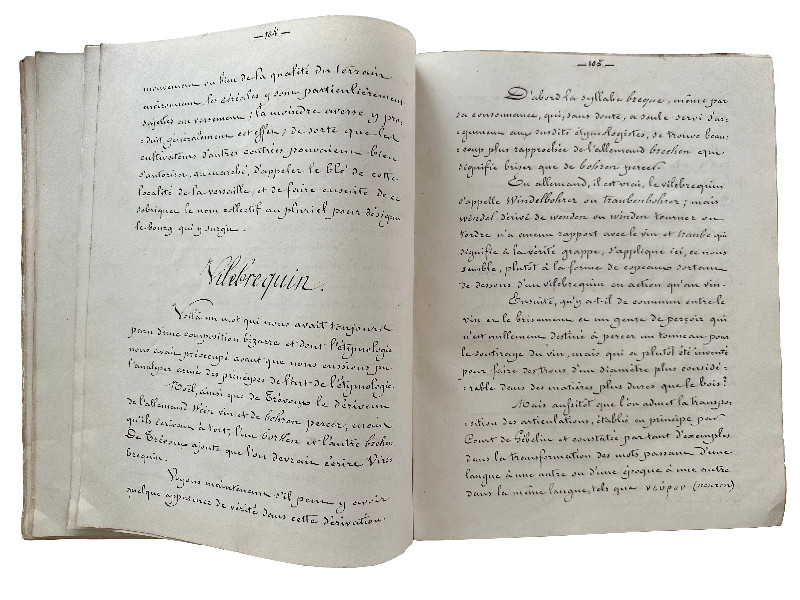 — 104 —
mouvement ou bien de la qualité du terrain
environnant les céréales y sont particulièrement
sujettes au versement ; la moindre averse y pro-
: duit généralement cet effet ; de sorte que les
cultivateurs d'autres contrées pouvaient bien
s'autoriser, au marché, d'appeler le blé de cette
localité de la versaille, et de faire ensuite de ce
sobriquet le nom collectif au pluriel pour désigner
le bourg qui y surgit .
Vilebrequin .
Voilà un mot qui nous avait toujours
paru d'une composition bizarre et dont l'étymologie
nous avait préoccupé avant que nous eussions pu
l'analyser armé des principes de l'art de l'étymologie.
Noël, ainsi que de Trévoux le dérivent
de l'allemand Wein vin et de bohren percer, mot
qu'ils écrivent à tort, l'un borhen et l'autre brehen.
De Trévoux ajoute que l'on devrait écrire Vires
brequin.
Voyons maintenant s'il peut y avoir
quelque apparence de vérité dans cette dérivation.
— 105 —
D'abord la syllabe breque, même par
sa consonnance, qui, sans doute, a seule servi d'ar-
: gument aux susdits étymologistes, se trouve beau-
: coup plus rapprochée de l'allemand brechen qui
signifie briser que de bohren percer.
En allemand, il est vrai, le vilebrequin
s'appelle Windelbohrer ou traubenbohrer ; mais
windel dérivé de wenden ou winden tourner ou
tordre n'a aucun rapport avec le vin et traube qui
signifie à la vérité grappe, s'applique ici, ce nous
semble, plutôt à la forme de copeaux sortant
de dessous d'un vilebrequin en action qu'au vin.
Ensuite, qu'y a-t-il de commun entre le
vin et le brisement et un genre de perçoir qui
n'est nullement destiné à percer un tonneau pour
le soutirage du vin, mais qui a plutôt été inventé
pour faire des trous d'un diamètre plus considé-
: rable dans des matières plus dures que le bois ?
Mais aussitôt que l'on admet la transpo-
: sition des articulations, établie en principe par
Court de Gébelin et constatée par tant d'exemples
dans la transformation des mots passant d'une
langue à une autre ou d'une époque à une autre
dans la même langue, tels que νεῦρον (neuron)